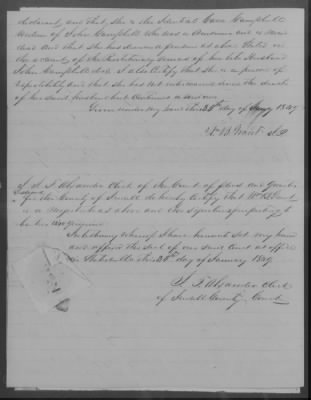 declarant, and that she is the Identical Campbell
Widow of John Campbell who was a and is now
dead and that she has drawn a pension as above stated on
the account of the Revolutionary Services of her late Husband
John Campbell decd. I also Certify that she is a person of
respectability and that she has not intermarried since the death
of her said husband but continues a widow
Given under my hand this 26th day of Jany 1849
J.P.
I, Clerk of the Court of pleas and Quarter
Sessions for the County of Iredell do hereby certify that
is a Magistrate as above and the signature purporting to
be his is genuine
In testimony whereof I have hereunto set my hand
and affixed the Seal of our said Court at office
in Statesville this 26th day of January 1849
Clerk
of Iredell County Court